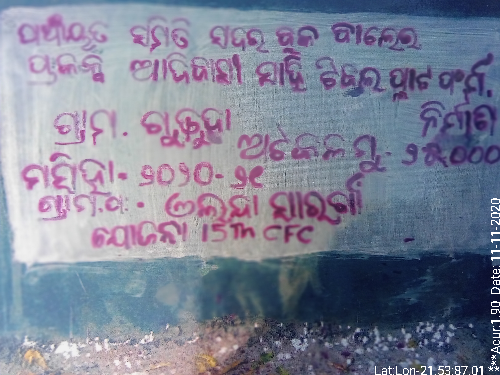 ପଞ୍ଚାୟତ ସମିତି ସଦର ବ୍ଲକ ବାଲେଶ୍ବର
ପ୍ରକଳ୍ପ ଆଦିବାସୀ ସାହି ଟିଉବଲ ପ୍ଲାଟ ଫର୍ମ
ନିର୍ମାଣ
ଗ୍ରାମ.
ଅଟକଳ ମୂ. ୨୫,୦୦୦
ମସିହା- ୨୦୨୦-୨୧
ଗ୍ରା.ପ.-
ଯୋଜନା 15TH CFC
***Acur:1.90 Date: 11-11-2020
Lat:Lon-21.53:87.01